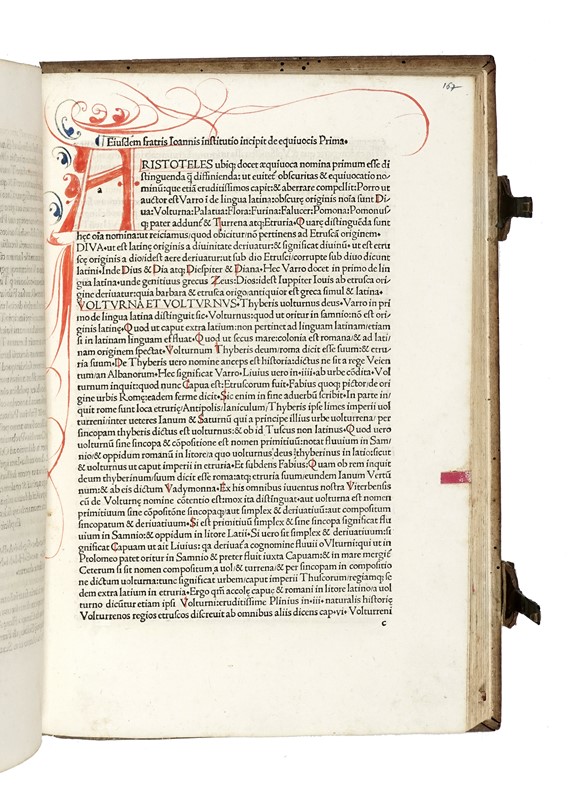 167
¶ Eiusdem fratris Ioannis institutio incipit de equiuocis Prima.
ARISTOTELES ubiq; docet æquiuoca nomina primum esse di
stinguenda q̃ diffinienda: ut euitet̃ obscuritas & equiuocatio no
minũ: que etiã eruditissimos capit: & aberrare compellit: Porro ut
auctor est Varro ĩ de lingua latina: obscurę originis noĩa sunt Di
ua: Volturna: Palatua: Flora: Furina: Falucer: Pomona: Pomonus
q; pater addunt̃ & Turrena atq; Etruria. Quare distinguẽda sunt
a
hęc oĩa nomina: ut reiciamus: quod obicitur: nõ pertinens ad Etruscã originem.
DIVA. ut est latinę originis a diuinitate deriuatur: & significat diuinũ. ut est etru
scę originis a dio/idest aere deriuatur: ut sub dio Etrusci/corrupte sub diuo dicunt
latini. Inde Dius & Dia atq; Diespiter & Diana. Hec Varro dicit in primo de lin
gua latina. unde genitiuus grecus Zeus: Dios: idest Iuppiter Iouis ab etrusca ori
gine deriuatur: quia barbara & etrusca origo/antiquior est greca simul & latina.
VOLTVRNA ET VOLTVRNVS. Thyberis uolturnus deus. Varro in pri
mo de lingua latina distinguit sic. Volturnus: quod ut oritur in samnio: nõ est ori
ginis latinę. Quod ut caput extra latium: non pertinet ad linguam latinam/etiam
si in latinam linguam effluat. Quod ut secus mare: colonia est romana: & ad lati/
nam originem spectat. Volturnum Thyberis deum/roma dicit esse suum: & etru/
ria suum. De Thyberis uero nomine anceps est historia: dictus ne sit a rege Veien
tum/an Albanorum. Hec significat Varro. Liuius uero in.iiii. ab urbe cõdita. Vol
turnum inquit: quod nunc Capua est: Etruscorum fuit. Fabius quoq; pictor/de ori
gine urbis Romę: eadem ferme dicit. Sic enim in fine aduerbũ scribit. In parte in/
quit rome sunt loca etrurię/Antipolis/Ianiculum/Thyberis ipse limes imperii uol
turreni/inter ueteres Ianum & Saturnũ qui a principe illius urbe uolturrena/per
sincopam thyberis dictus est uolturnus: & ob id Tuscus non latinus. Quod uero
uolturnũ sine sincopa & cõpositione est nomen primitiuũ: notat fluuium in Sam/
nio/& oppidum romanũ in litore/a quo uolturnus deus: thyberinus in latio: sicut
& uolturnus ut caput imperii in etruria. Et subdens Fabius: Quam ob rem inquit
deum thyberinum/suum dicit esse roma: atq; etruria suum/eundem Ianum Vertũ
num: & ab eis dictum Vadymonna. Ex his omnibus iuuentus nostra Viterbensis
cũ de Volturnę nomine cõtentio est: mox ita distinguat. aut uolturna est nomen
primitiuum sine cõpositõne sincopaq;/aut simplex & deriuatiuũ: aut compositum
sincopatum & deriuatiuum. Si est primitiuũ simplex & sine sincopa significat flu
uium in Samnio: & oppidum in litore Latii. Si uero sit simplex & deriuatiuum: si
gnificat Capuam ut ait Liuius: qa deriuat̃ a cognomine fluuii oVlturni: qui ut in
Ptolomeo patet oritur in Samnio & preter fluit iuxta Capuam: & in mare mergit̃
Ceterum si sit nomen compositum a uol/& turrena/& per sincopam in compositio
ne dictum uolturna: tunc significat urbem/caput imperii Thuscorum/regiamq; se
dem extra latium in etruria. Ergo qm̃ accolę capuę & romani in litore latino/a uol
turno dicũtur etiam ipsi Volturni: eruditissime Plinius in.iii. naturalis historię
Volturrenos regios etruscos discreuit ab omnibus aliis dicens cap.vi. Volturreni
c